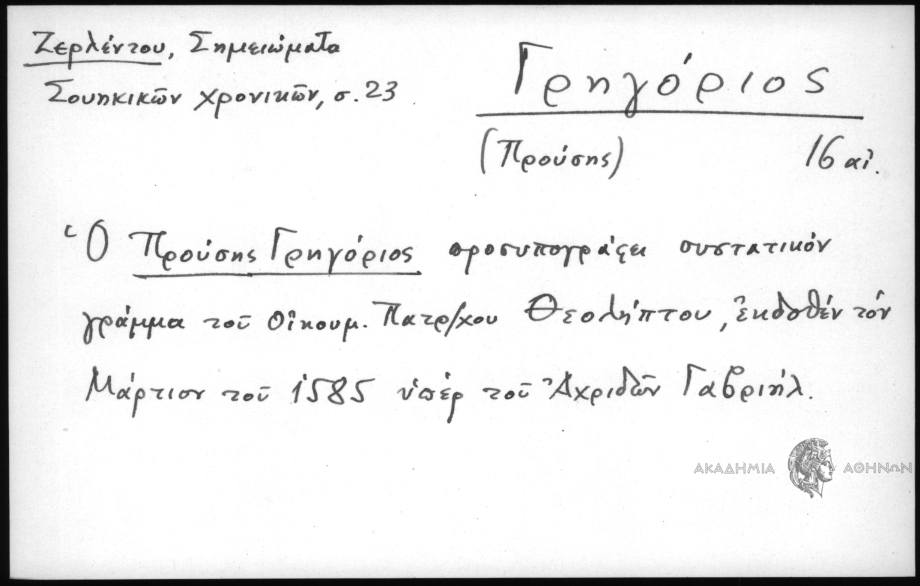 Ζερλέντου, Σημειώματα
Σουηκικῶν χρονικῶν, σ. 23
Γρηγόριος
(Προύσης) 16 αἰ.
Ὁ Προύσης Γρηγόριος προσυπογράφει συστατικόν
γράμμα τοῦ Οἰκουμ. Πατρ/χου Θεολήπτου, ἐκδοθέν τόν
Μάρτιον τοῦ 1585 ὑπέρ τοῦ Ἀχριδῶν Γαβριήλ.
ΑΚΑΔΗΜΙΑ ΑΘΗΝΩΝ